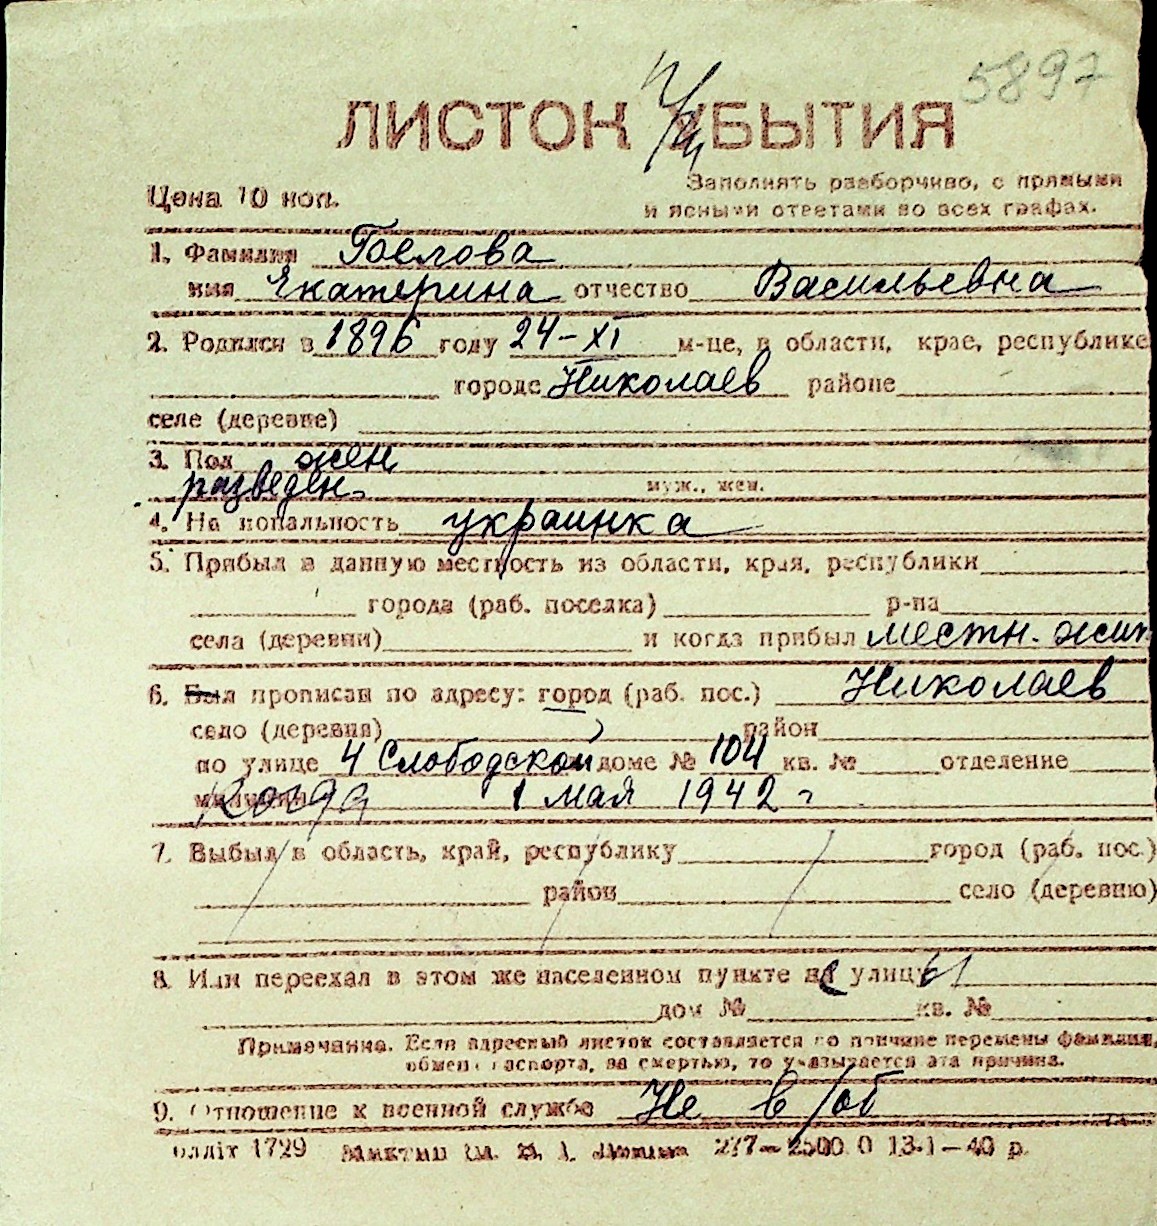 5897
ЛИСТОК УБЫТИЯ
Цена 10 коп.
Заполнять разборчиво, с прямыми
и ясными ответами во всех графах.
1. Фамилия Гоелова
имя Екатерина отчество Васильевна
2. Родился в 1896 году 24-XI м-це, в области, крае, республике
городе Николаев районе
селе (деревне)
3. Пол жен
разведен. муж., жен.
4. На иопальность украинка
5. Прибыл в данную местность из области, края, республики
города (раб. поселка) р-на
села (деревни) и когда прибыл местн. жит
6. Был прописан по адресу: город (раб. пос.) Николаев
село (деревня) район
по улице 4 Слободской доме № 104 кв. № отделение
милиции Когда 1 мая 1942 г
7. Выбыл в область, край, республику город (раб. пос.)
район село (деревню)
8. Или переехал в этом же населенном пункте на улицу
дом № кв. №
Примечание. Если адресный листок составляется по причине перемены фамилии,
обмена паспорта, за смертью, то указывается эта причина.
9. Отношение к военной службе Не в/об
1729 277–2500 0 13-1–40 р.